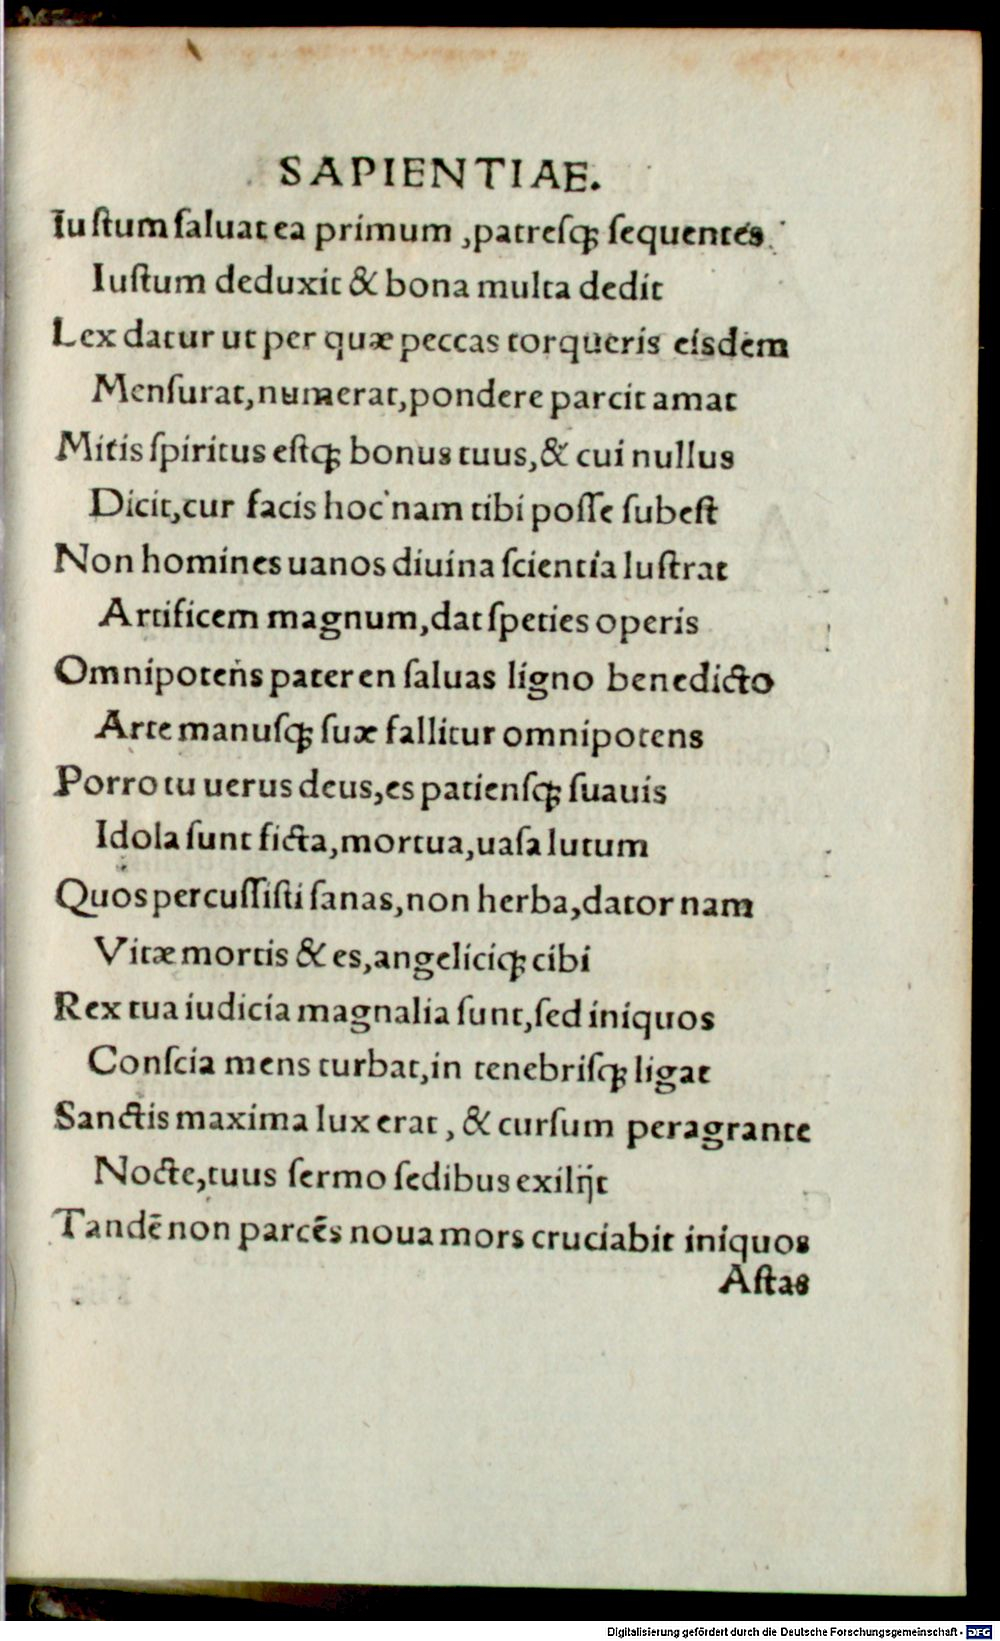 SAPIENTIAE.
Iuſtum ſaluat ea primum ,patreſq; ſequentes.
Iuſtum deduxit & bona multa dedit
Lex datur ut per quæ peccas torqueris eiſdem
Menſurat,numerat,pondere parcit amat
Mitis ſpiritus eſtq; bonus tuus,& cui nullus
Dicit,cur facis hoc nam tibi poſſe ſubeſt
Non homines uanos diuina ſcientia luſtrat
Artificem magnum,dat ſpeties operis
Omnipotens pater en ſaluas ligno benedicto
Arte manuſq; ſuæ fallitur omnipotens
Porro tu uerus deus,es patienſq; ſuauis
Idola ſunt ficta,mortua,uaſa lutum
Quos percuſſiſti ſanas,non herba,dator nam
Vitæ mortis & es,angeliciq; cibi
Rex tua iudicia magnalia ſunt,ſed iniquos
Conſcia mens turbat,in tenebriſq; ligat
Sanctis maxima lux erat , & curſum peragrante
Nocte,tuus ſermo ſedibus exilijt
Tandē non parcēs noua mors cruciabit iniquos
Aſtas
Digitalisierung gefördert durch die Deutsche Forschungsgemeinschaft - DFG